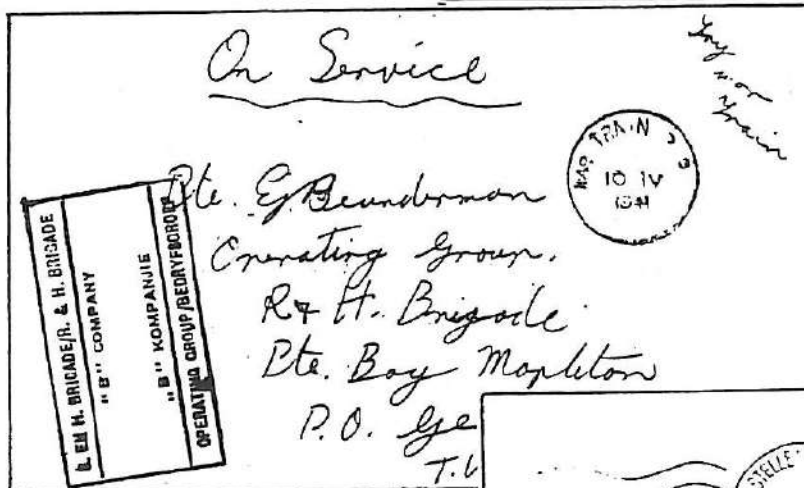 On Service
Train
TRAIN
10 IV
1941
Pte. E.J. Beunderman
Operating Group.
R & H. Brigade
Pte. Bag Mapleton
P.O. Ge
T.V
S. EN H. BRIGADE/R. & H. BRIGADE
"B" COMPANY
„B" KOMPANJIE
OPERATING GROUP/BEDRYFSGROEP
STELLE